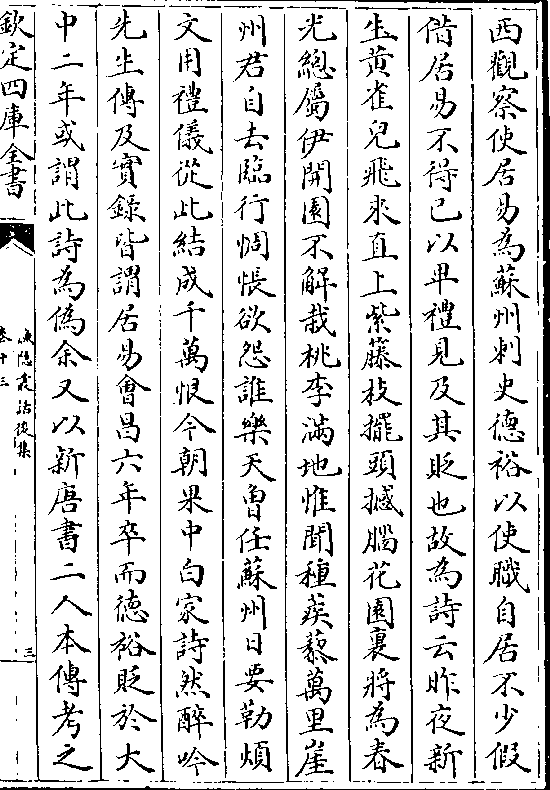 西觀察使居易為蘇州刺史德裕以使職自居不少假
借居易不得已以卑禮見及其貶也故為詩云昨夜新
生黃雀兒飛來直上紫藤枝擺頭撼腦花園裏將為春
光總屬伊開園不解栽桃李滿地惟聞種蒺藜萬里崖
州君自去臨行惆悵欲怨誰樂天曾任蘇州日要勒煩
文用禮儀從此結成千萬恨今朝果中白家詩然醉吟
先生傳及實錄皆謂居易會昌六年卒而德裕貶於大
中二年或謂此詩為偽余又以新唐書二人本傳考之
欽定四庫全書
漁隱叢話後集
卷十三
三